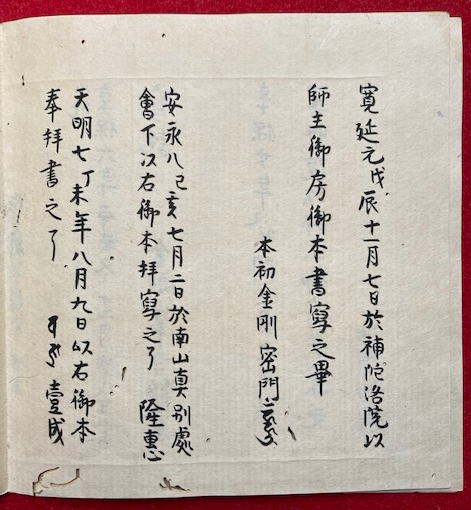 寛延元戊辰十一月七日於補陀洛院以
師主御房御本書寫之畢
本初金剛密門
安永八己亥七月二日於南山真別處
會下以右御本拝寫之了 隆惠
天明七丁未年八月九日以右御本
奉拝書之了 壹成